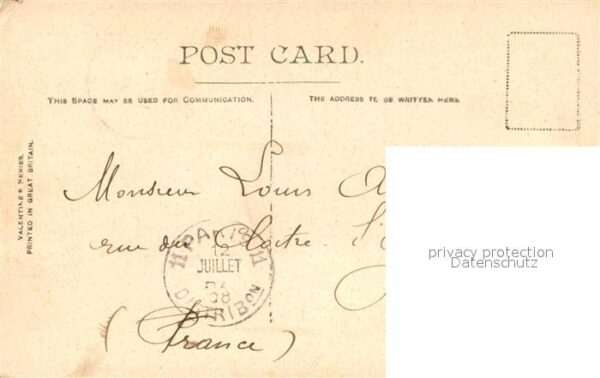 POST CARD.
THIS SPACE MAY BE USED FOR COMMUNICATION.
THE ADDRESS TO BE WRITTEN HERE.
VALENTINE'S SERIES.
PRINTED IN GREAT BRITAIN.
Monsieur Louis
rue du Cloitre
(France)
PARIS
11 11
12
JUILLET
08
DISTRIBON
privacy protection
Datenschutz